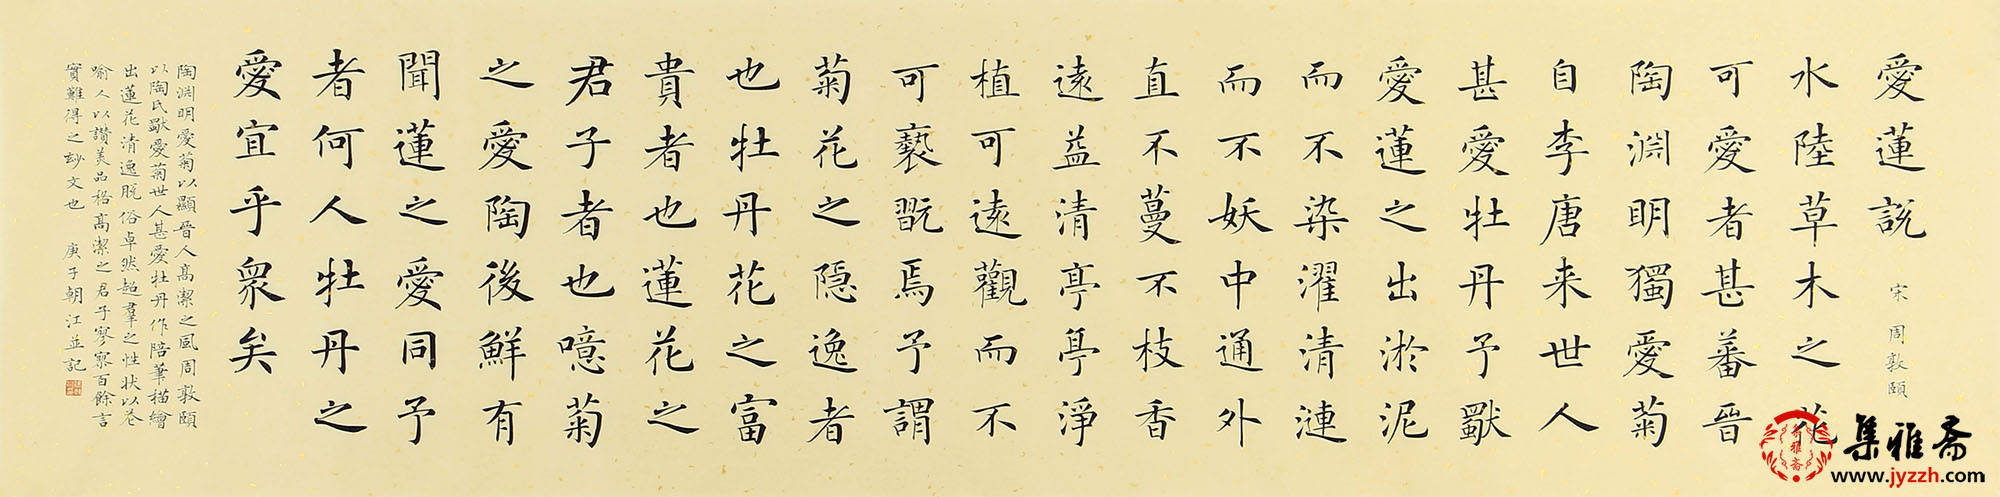 愛蓮説 宋 周敦頤
水陸草木之花
可愛者甚蕃晉
陶淵明獨愛菊
自李唐来世人
甚愛牡丹予獨
愛蓮之出淤泥
而不染濯清漣
而不妖中通外
直不蔓不枝香
遠益清亭亭淨
植可遠觀而不
可褻翫焉予謂
菊花之隱逸者
也牡丹花之富
貴者也蓮花之
君子者也噫菊
之愛陶後鮮有
聞蓮之愛同予
者何人牡丹之
愛宜乎衆矣
陶淵明愛菊以顯晉人高潔之風周敦頤
以陶氏獨愛菊世人甚愛牡丹作陪筆描繪
出蓮花清逸脱俗卓然超羣之性状以花
喻人以讚美品格高潔之君子寥寥百餘言
實難得之妙文也 庚子朝江並記
集雅斋
www.jyzzh.com